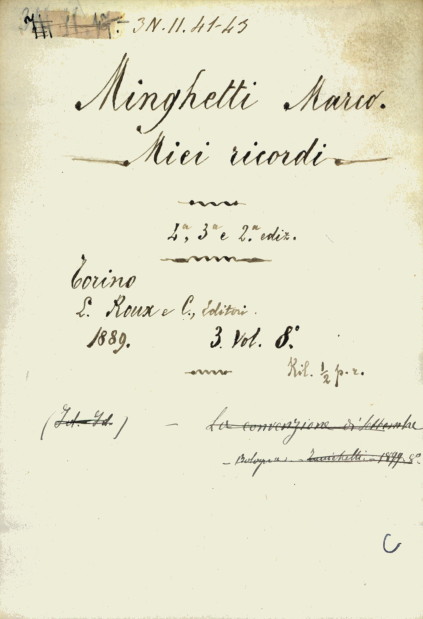 3N.II.41-43
Minghetti Marco.
Miei ricordi
4ª, 3ª e 2.ª ediz.
Torino
L. Roux e C., Editori.
1889. 3. Vol. 8.°
Ril. ½ p. r.
(Id. Id.) — La convenzione di Settembre
– Bologna – Zanichelli – 1899. 8.°